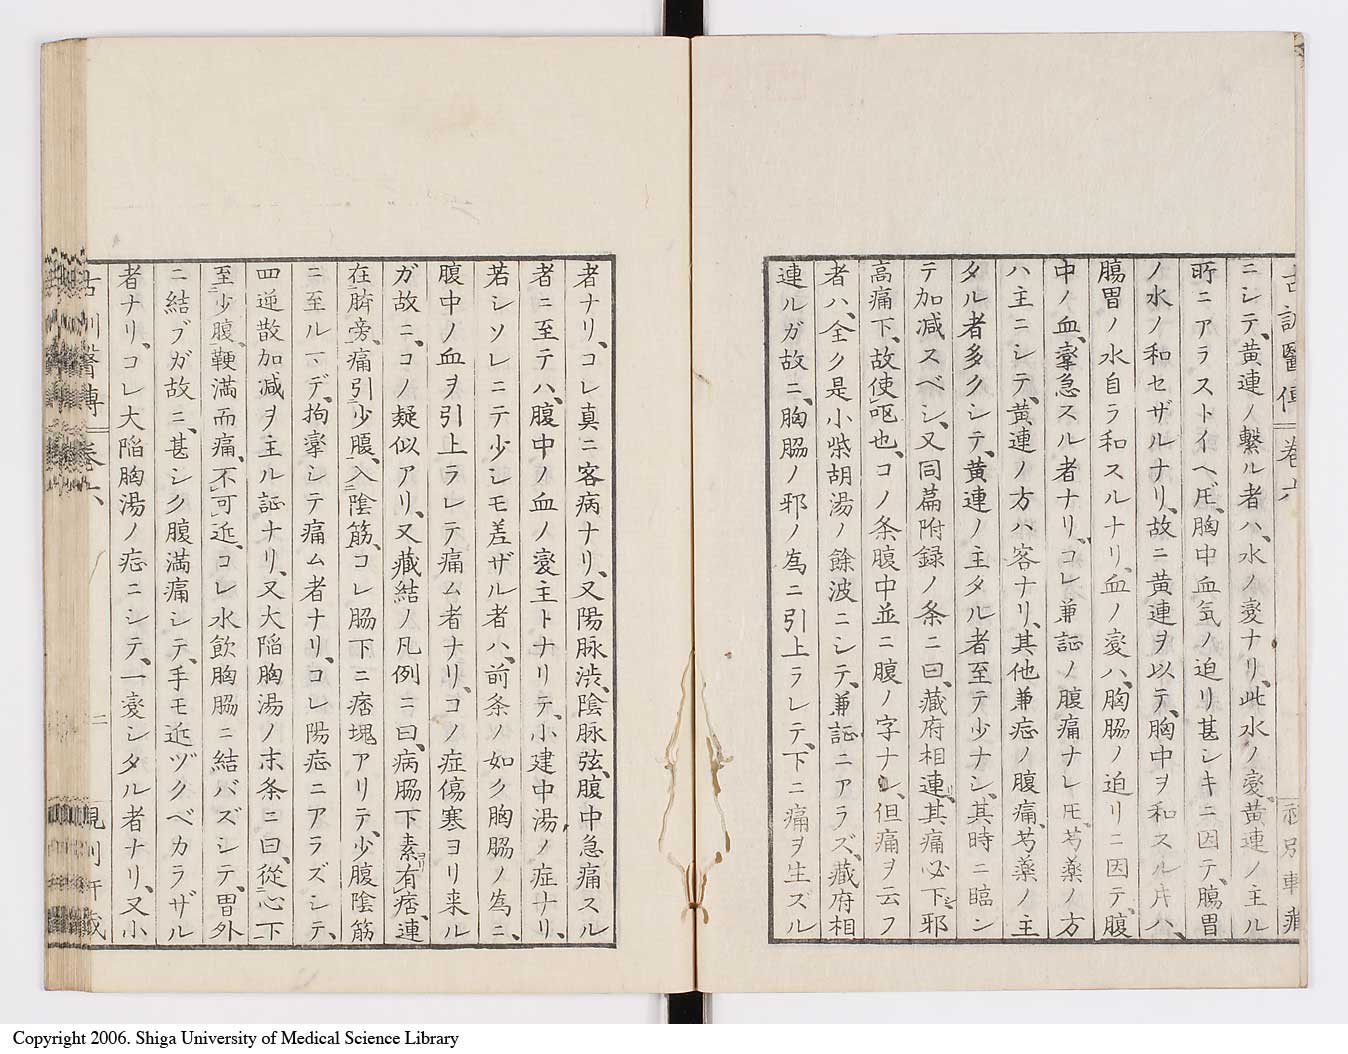 古訓醫傳 巻六
ニシテ、黄連ノ繋ル者ハ、水ノ変ナリ、此水ノ変黄連ノ主ル
所ニアラストイヘ𪜈、胸中血気ノ迫リ甚シキニ因テ、腸胃
ノ水ノ和セザルナリ、故ニ黄連ヲ以テ、胸中ヲ和スル片ハ、
腸胃ノ水自ラ和スルナリ、血ノ変ハ、胸脇ノ迫リニ因テ、腹
中ノ血、攣急スル者ナリ、コレ兼証ノ腹痛ナレ𪜈、芍薬ノ方
ハ主ニシテ、黄連ノ方ハ客ナリ、其他兼症ノ腹痛、芍薬ノ主
タル者多クシテ、黄連ノ主タル者至テ少ナシ、其時ニ臨ン
テ加减スベシ、又同篇附録ノ条ニ曰、藏府相連、其痛必下、邪
高痛下、故使嘔也、コノ条腹中並ニ腹ノ字ナシ、但痛ヲ云フ
者ハ、全ク是小柴胡湯ノ餘波ニシテ、兼証ニアラズ、藏府相
連ルガ故ニ、胸脇ノ邪ノ為ニ引上ラレテ、下ニ痛ヲ生ズル
者ナリ、コレ真ニ客病ナリ、又陽脉渋、陰脉弦、腹中急痛スル
者ニ至テハ、腹中ノ血ノ変主トナリテ、小建中湯ノ症ナリ、
若シソレニテ少シモ差ザル者ハ、前条ノ如ク胸脇ノ為ニ、
腹中ノ血ヲ引上ラレテ痛ム者ナリ、コノ症傷寒ヨリ来ル
ガ故ニ、コノ疑似アリ、又藏結ノ凡例ニ曰、病脇下素有痞、連
在臍旁、痛引少腹、入陰筋、コレ脇下ニ痞塊アリテ、少腹陰筋
ニ至ルヽデ、拘攣シテ痛ム者ナリ、コレ陽症ニアラズシテ、
四逆散加减ヲ主ル証ナリ、又大陥胸湯ノ末条ニ曰、從心下
至少腹、鞕満而痛、不可近、コレ水飲胸脇ニ結バズシテ、胃外
ニ結ブガ故ニ、甚シク腹満痛シテ、手モ近ヅクベカラザル
者ナリ、コレ大陥胸湯ノ症ニシテ、一変シタル者ナリ、又小
古訓醫傳 巻六 二
Copyright 2006. Shiga University of Medical Science Library